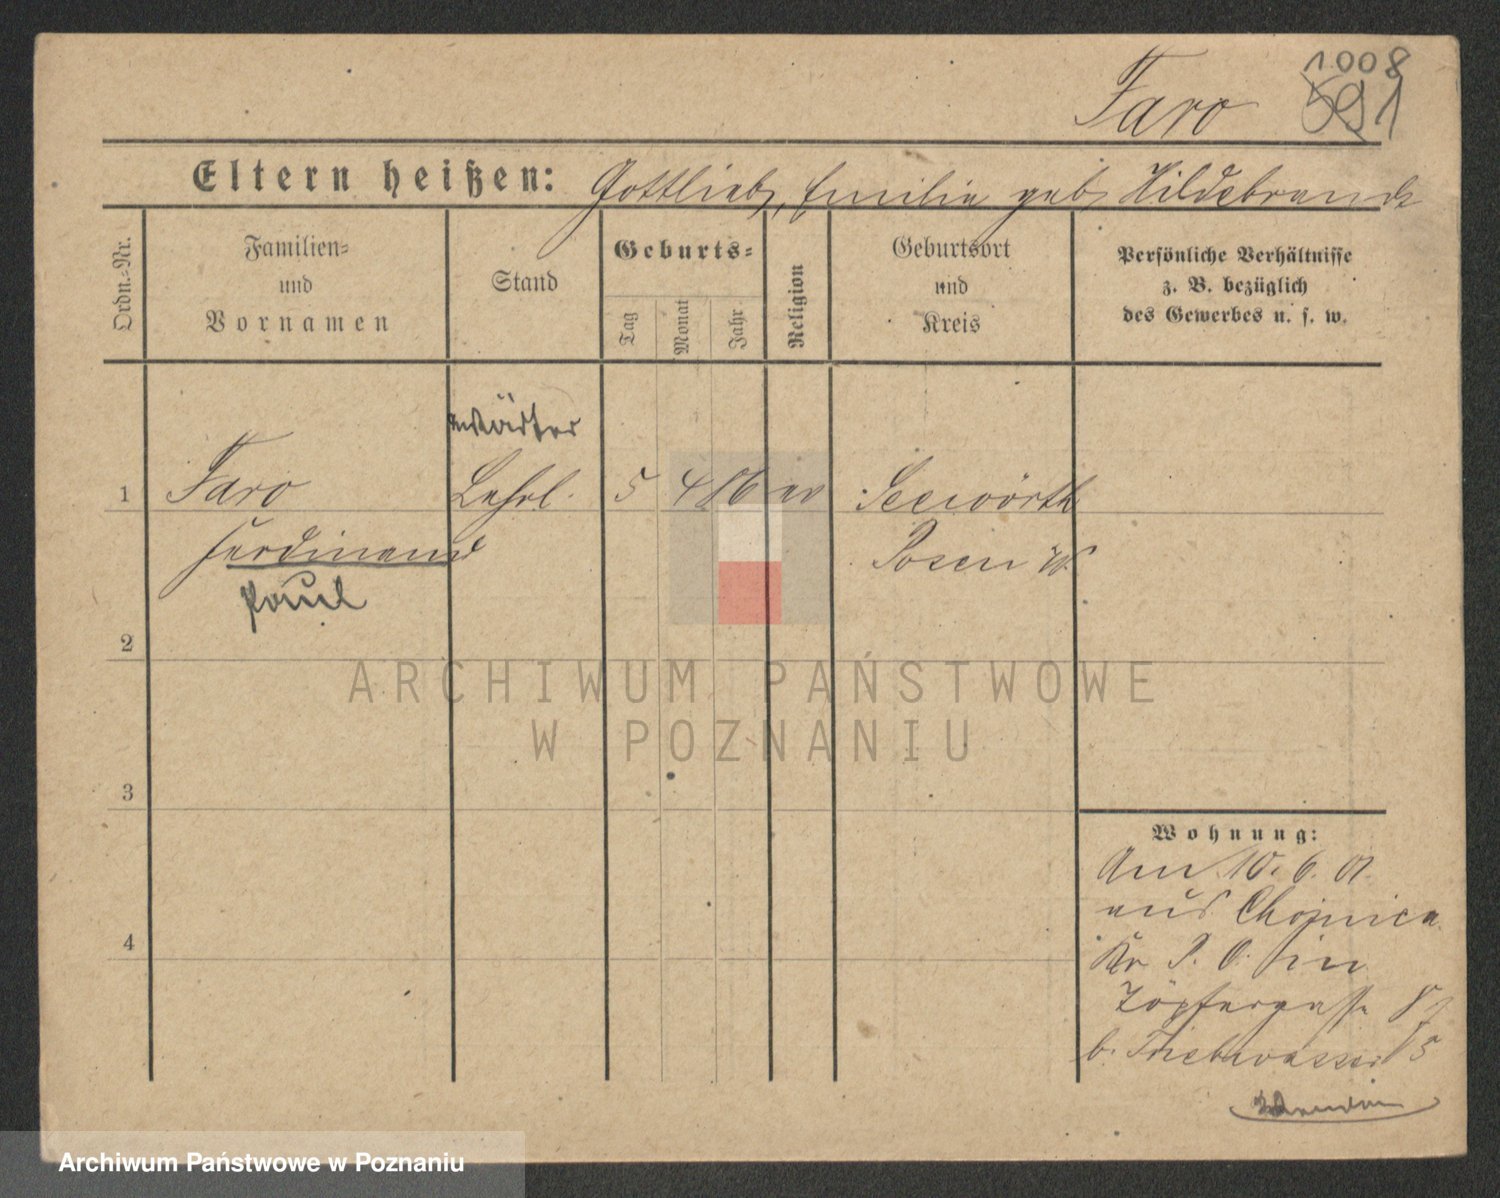 1008
Faro 591
Eltern heißen: Gottlieb, Emilie geb Hildebrandt
Ordn.-Nr.
Familien-
und
Vornamen
Stand
Geburts-
Tag
Monat
Jahr
Religion
Geburtsort
und
Kreis
Persönliche Verhältnisse
z. B. bezüglich
des Gewerbes u. s. w.
1 Faro Lehrl. 5 4 86 ev Seewörth
Ferdinand Posen W.
Paul
2
ARCHIWUM PAŃSTWOWE
W POZNANIU
3
4
Wohnung:
Am 10. 6. 01.
aus Chojnica
Kr P. O. in
Töpfergasse
b. Triebwasser
Archiwum Państwowe w Poznaniu